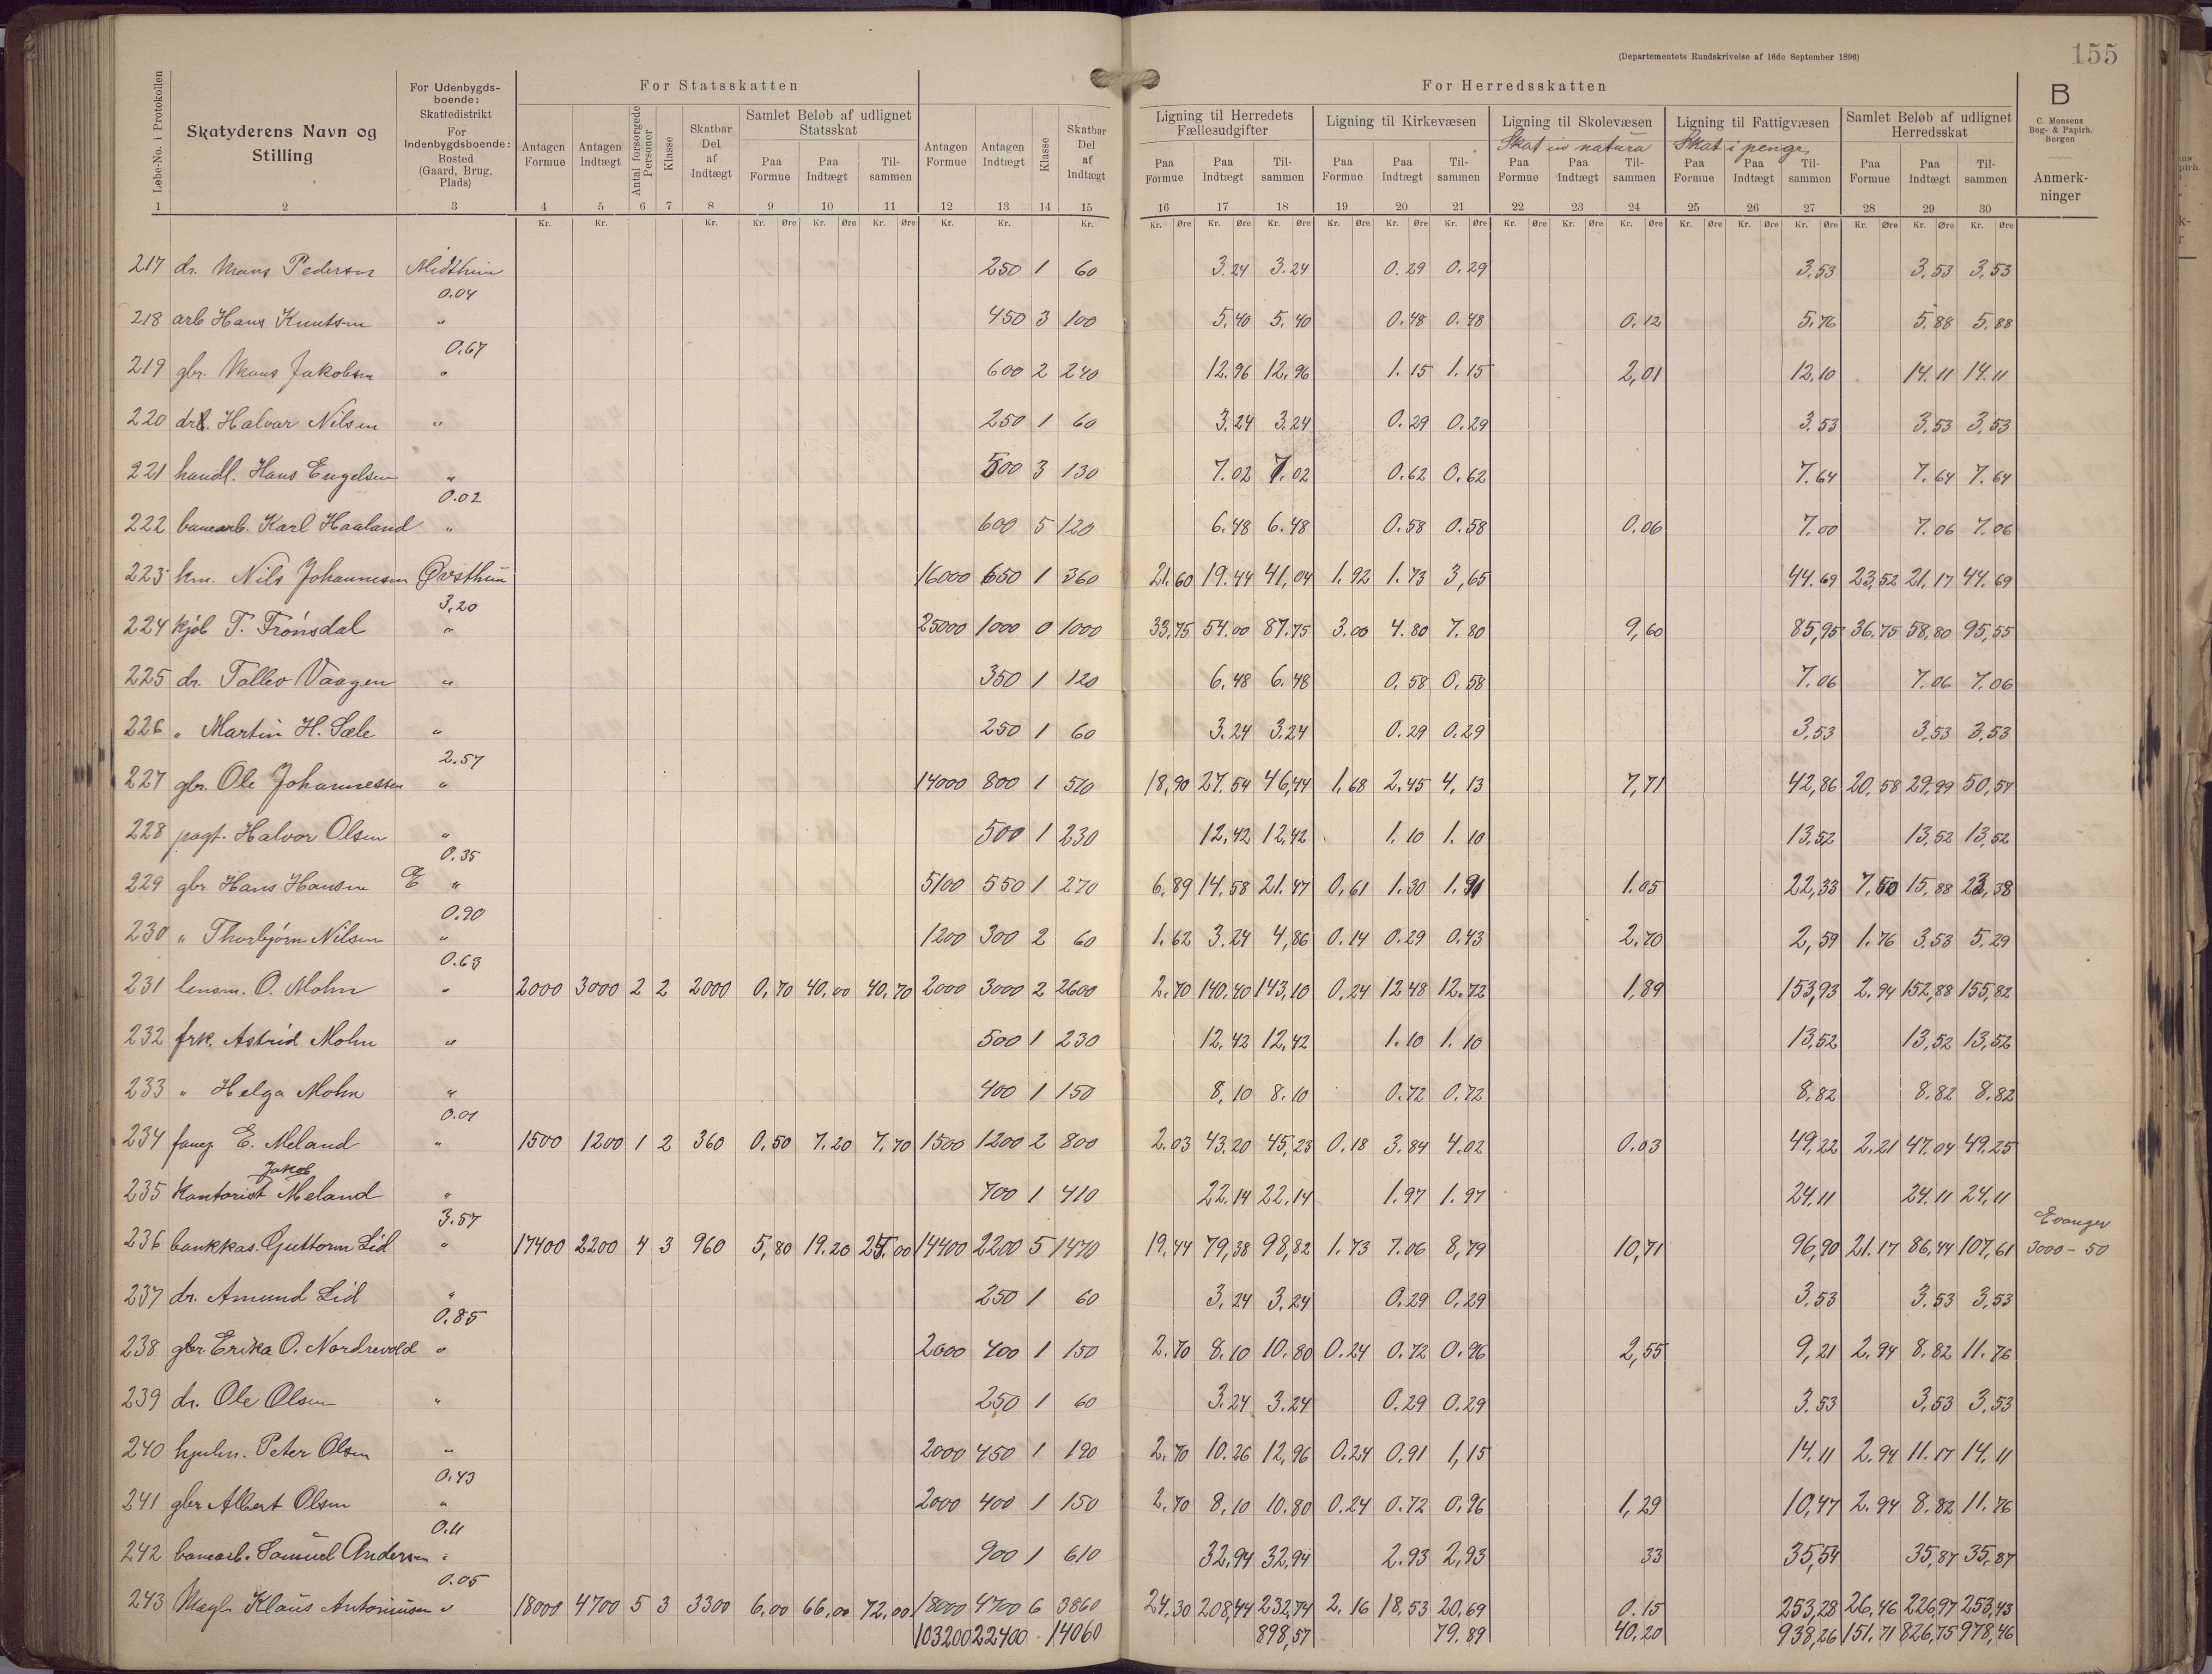 (Departementets Rundskrivelse af 16de September 1896)
155
Løbe-No. i Protokollen
Skatyderens Navn og Stilling
For Udenbygdsboende: Skattedistrikt For Indenbygdsboende: Bosted (Gaard, Brug, Plads)
For Statsskatten
Antagen Formue
Antagen Indtægt
Antal forsørgede Personer
Klasse
Skatbar Del af Indtægt
Samlet Beløb af udlignet Statsskat
Paa Formue
Paa Indtægt
Tilsammen
Antagen Formue
Antagen Indtægt
Klasse
Skatbar Del af Indtægt
For Herredsskatten
Ligning til Herredets Fællesudgifter
Paa Formue Paa Indtægt Tilsammen
Ligning til Kirkevæsen
Paa Formue Paa Indtægt Tilsammen
Ligning til Skolevæsen
Skat in natura
Paa Formue Paa Indtægt Tilsammen
Ligning til Fattigvæsen
Skat i penge
Paa Formue Paa Indtægt Tilsammen
Samlet Beløb af udlignet Herredsskat
Paa Formue Paa Indtægt Tilsammen
B
C. Monsens Bog- & Papirh. Bergen
Anmerkninger
1 2 3 4 5 6 7 8 9 10 11 12 13 14 15 16 17 18 19 20 21 22 23 24 25 26 27 28 29 30
217 dr. Mons Pedersen Midthun 250 1 60 3.24 3.24 0.29 0.29 3.53 3.53 3,53
0.04
218 arb Hans Knutsen " 450 3 100 5.40 5.40 0.48 0.48 0.12 5.76 5.88 5.88
0.67
219 gbr. Mons Jakobsen " 600 2 240 12.96 12.96 1.15 1.15 2,01 12.10 14.11 14.11
220 dr. Halvar Nilsen " 250 1 60 3.24 3.24 0.29 0.29 3.53 3.53 3.53
221 handl. Hans Engelsen " 500 3 130 7.02 7.02 0.62 0.62 7.64 7.64 7.64
0.02
222 banearb. Karl Haaland " 600 5 120 6.48 6.48 0.58 0.58 0.06 7.00 7.06 7.06
223 km. Nils Johannesen Øvsthun 16000 650 1 360 21.60 19.44 41,04 1.92 1.73 3,65 44.69 23,52 21.17 44.69
3,20
224 kjøb T. Trønsdal " 25000 1000 0 1000 33.75 54.00 87.75 3.00 4.80 7.80 9,60 85,95 36.75 58,80 95,55
225 dr. Tollev Vaagen " 350 1 120 6.48 6.48 0.58 0.58 7.06 7.06 7.06
226 " Martin H. Sæle " 250 1 60 3.24 3.24 0.29 0.29 3,53 3,53 3.53
2.57
227 gbr. Ole Johannessen " 14000 800 1 510 18,90 27.54 46,44 1.68 2.45 4,13 7,71 42,86 20.58 29.99 50,57
228 pagt. Halvor Olsen " 500 1 230 12,42 12,42 1.10 1.10 13,52 13,52 13,52
0.35
229 gbr. Hans Hansen " 5100 550 1 270 6,89 14,58 21.47 0,61 1.30 1.91 1.05 22,33 7,50 15,88 23,38
0.90
230 " Thorbjørn Nilsen " 1200 300 2 60 1.62 3.24 4,86 0.14 0.29 0.43 2.70 2,59 1.76 3.53 5.29
0.63
231 lensm. O. Mohn " 2000 3000 2 2 2000 0,70 40,00 40,70 2000 3000 2 2600 2.70 140,40 143,10 0,24 12 48 12,72 1,89 153,93 2.94 152,88 155,82
232 frk. Astrid Mohn " 500 1 230 12,42 12,42 1.10 1.10 13,52 13,52 13,52
233 " Helga Mohn " 400 1 150 8,10 8.10 0.72 0.72 8,82 8.82 8.82
0.01
234 E. Meland " 1500 1200 1 2 360 0.50 7.20 7.70 1500 1200 2 800 2.03 43.20 45,23 0.18 3.84 4.02 0.03 49,22 2.21 47.04 49.25
Jakob
235 Kontorist Meland " 700 1 410 22.14 22.14 1.97 1.97 24,11 24.11 24,11
3.57
Evanger
236 bankkas. Guttorm Lid " 17400 2200 4 3 960 5,80 19.20 25.00 14400 2200 5 1470 19,44 79,38 98,82 1.73 7.06 8,79 10,71 96,90 21.17 86,44 107,61 3000 - 50
237 dr. Amund Lid " 250 1 60 3,24 3.24 0.29 0,29 3.53 3.53 3,53
0.85
238 gbr Erika O. Nordrevold " 2000 400 1 150 2.70 8.10 10.80 0.24 0.72 0.96 2,55 9,21 2.94 8.82 11.76
239 dr. Ole Olsen " 250 1 60 3.24 3.24 0.29 0.29 3.53 3,53 3,53
240 hjulm. Peter Olsen " 2000 450 1 190 2.70 10.26 12,96 0.24 0.91 1,15 14.11 2.94 11.17 14,11
0.43
241 gbr Albert Olsen " 2000 400 1 150 2.70 8,10 10.80 0.24 0.72 0.96 1,29 10,47 2.94 8.82 11.76
0.11
242 banearb. Samuel Andersen " 900 1 610 32,94 32,94 2.93 2,93 33 35,54 35,87 35,87
0.05
243 Klaus Antoniusen " 18000 4700 5 3 3300 6,00 66,00 72,00 18000 4700 6 3860 24,30 208,44 232,74 2.16 18,53 20,69 0.15 253,28 26,46 226,97 253,43
103200 22400 14060 898,57 79.89 40,20 938,26 151.71 826,75 978,46